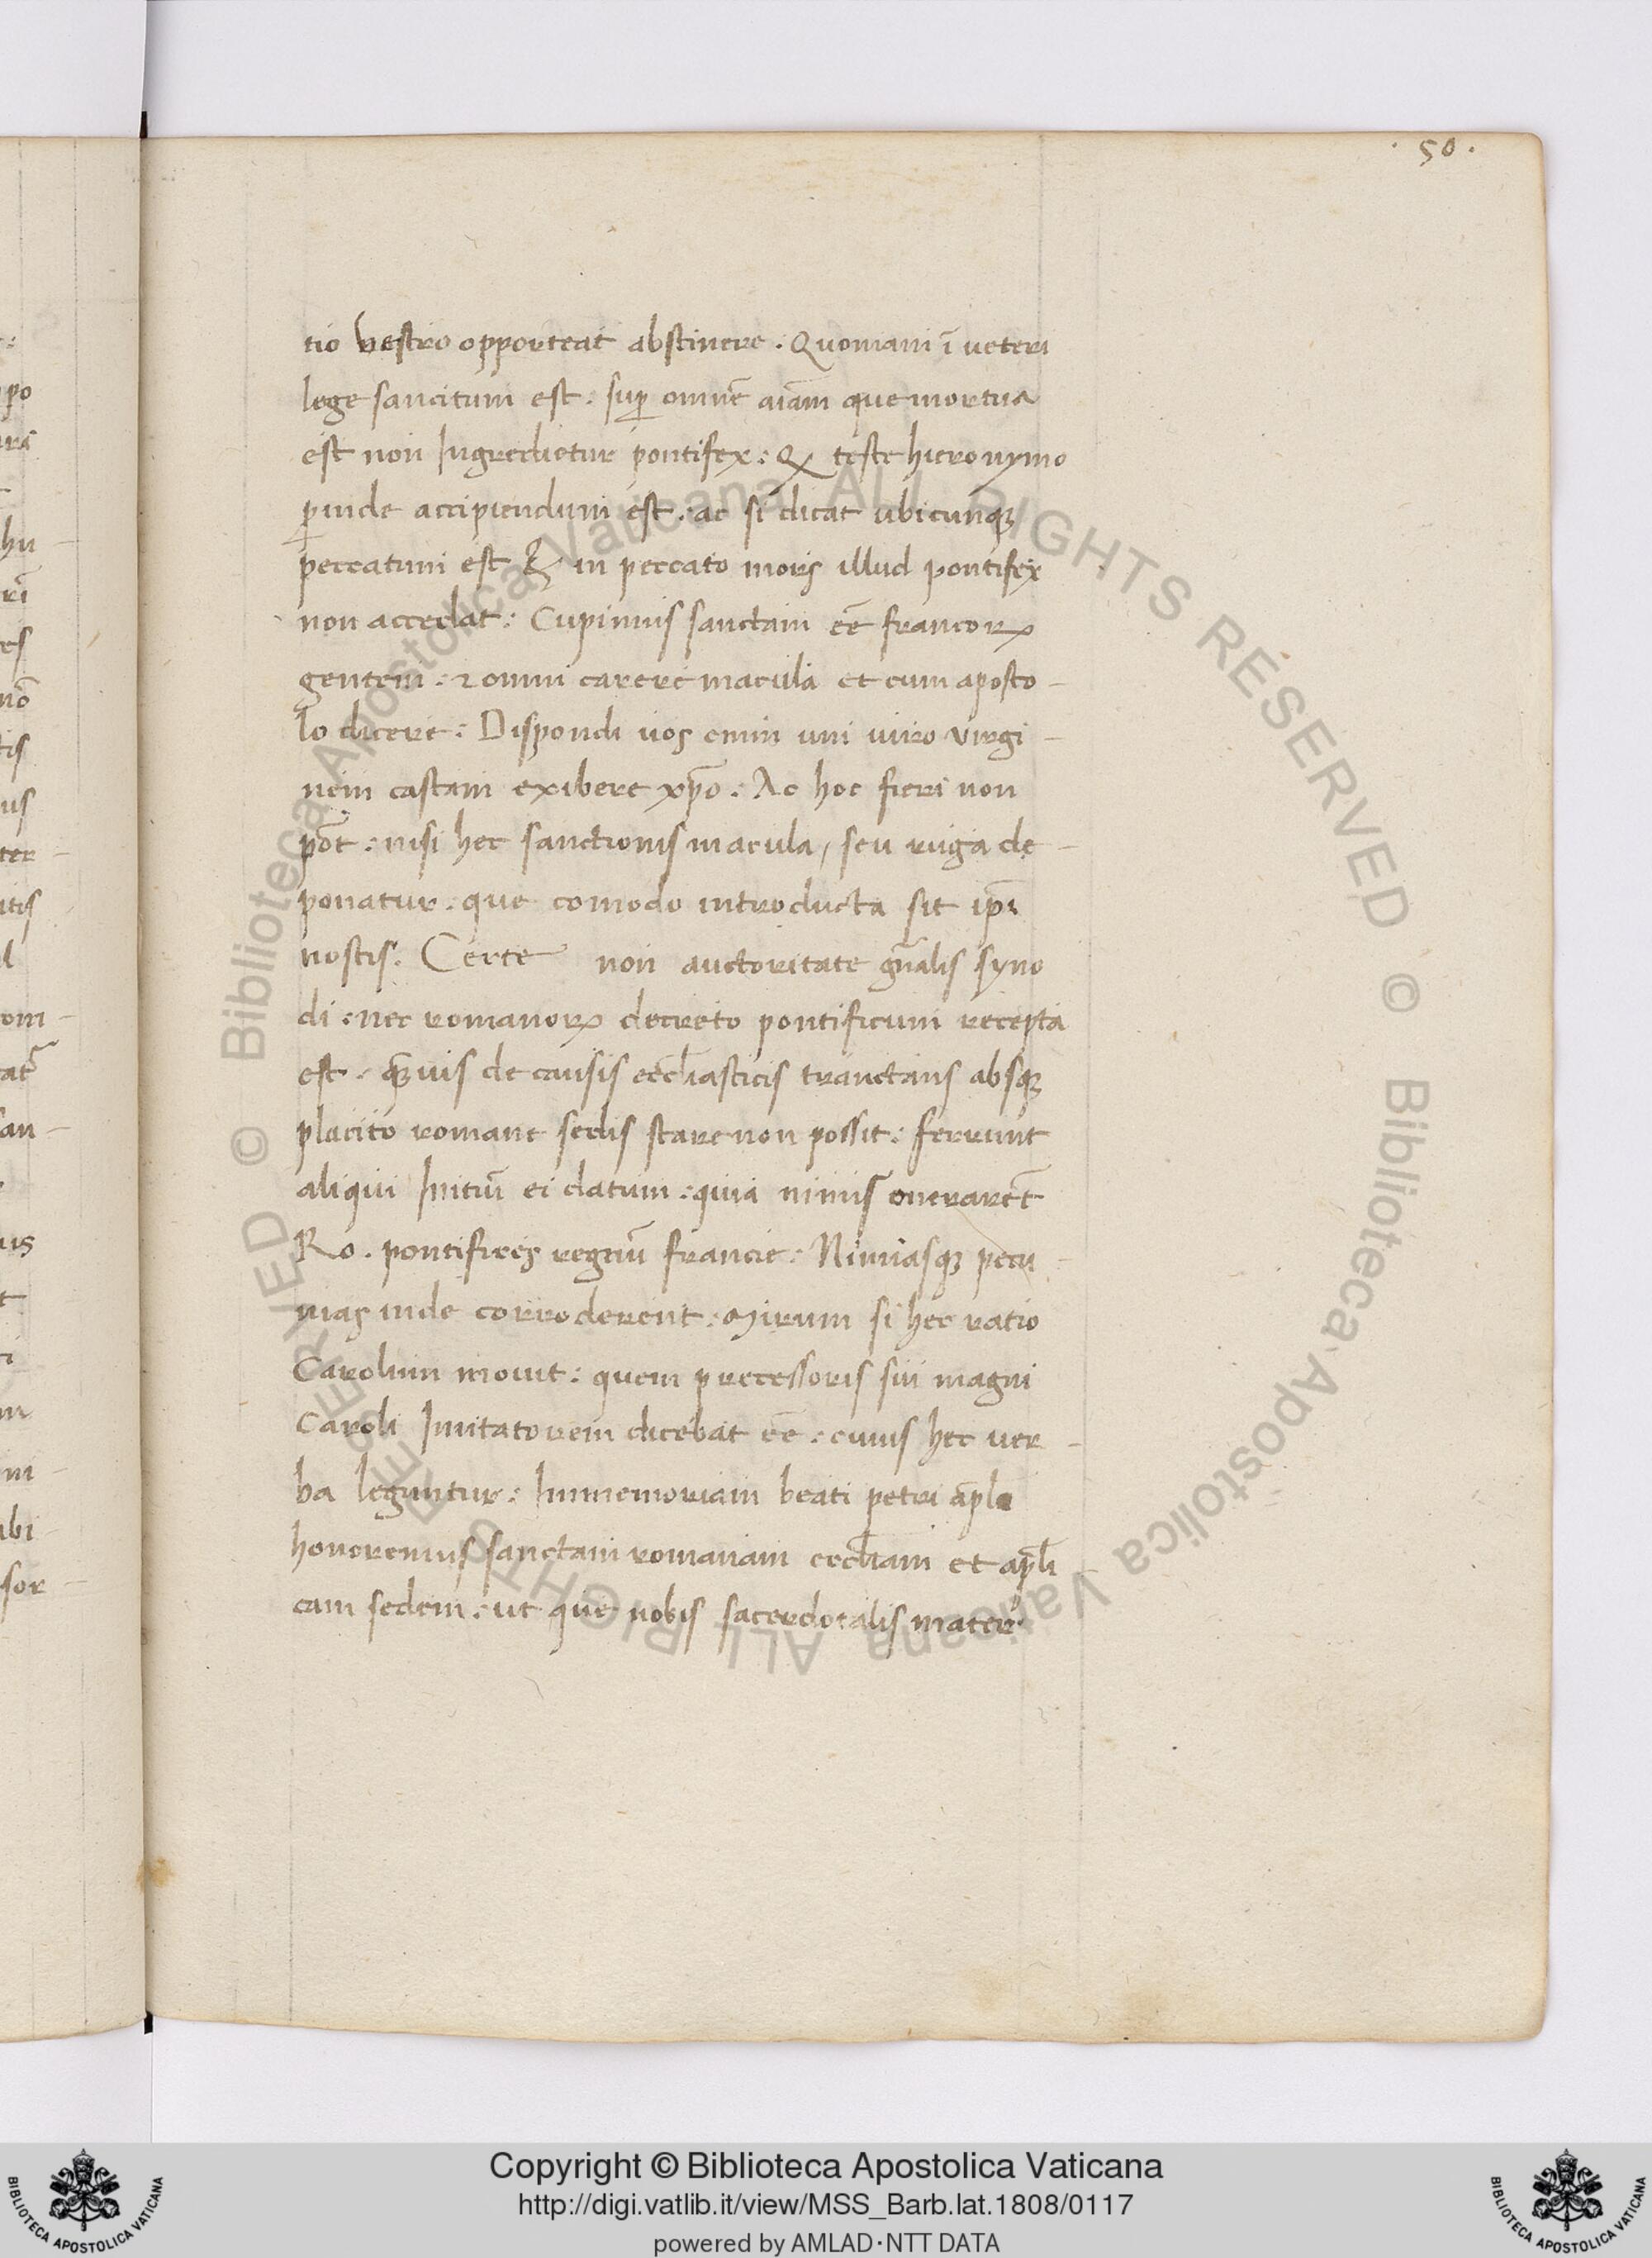 · 50 ·
tio vestro opporteat abstinere. Quoniam ī veteri
lege sancitum est: sup̄ omnē aīam que mortua
est non Ingredietur pontifex: Qꝫ teste hieronymo
ꝑinde accipiendum est: ac si dicat ubicunqꝫ
peccatum est & in peccato mors illud pontifex
non accedat: Cupimus sanctam eē francorꝝ
gentem: ⁊ omni carere macula et cum aposto-
lo dicere: Dispondi uos enim uni uiro virgi-
nem castam exibere xp̄o: Ac hoc fieri non
pōt: nisi hec sanctionis macula, seu ruga de-
ponatur: que comodo introducta sit ip̄i
nostis. Certe non auctoritate gn̄alis syno
di: nec romanorꝝ decreto pontificum recepta
est: qꝫuis de causis eccl̄iasticis tranctans absqꝫ
placito romane sedis stare non possit: ferrunt
aliqui Initiū ei datum: quia nimis onerarēt
Ro. pontifices regnū francie: Nimiasqꝫ pecu-
nias inde corroderent: Mirum si hec ratio
Carolum mouit: quem precessoris sui magni
Caroli Imitatorem dicebat eē: cuius hec uer-
ba leguntur: In memoriam beati petri ap̄li
honoremus sanctam romanam eccl̄iam et ap̄li
cam sedem: ut que nobis sacerdotalis mater
© Biblioteca Apostolica Vaticana ALL RIGHTS RESERVED
© Biblioteca Apostolica Vaticana ALL RIGHTS RESERVED
Copyright © Biblioteca Apostolica Vaticana
http://digi.vatlib.it/view/MSS_Barb.lat.1808/0117
powered by AMLAD·NTT DATA
BIBLIOTECA APOSTOLICA VATICANA
BIBLIOTECA APOSTOLICA VATICANA